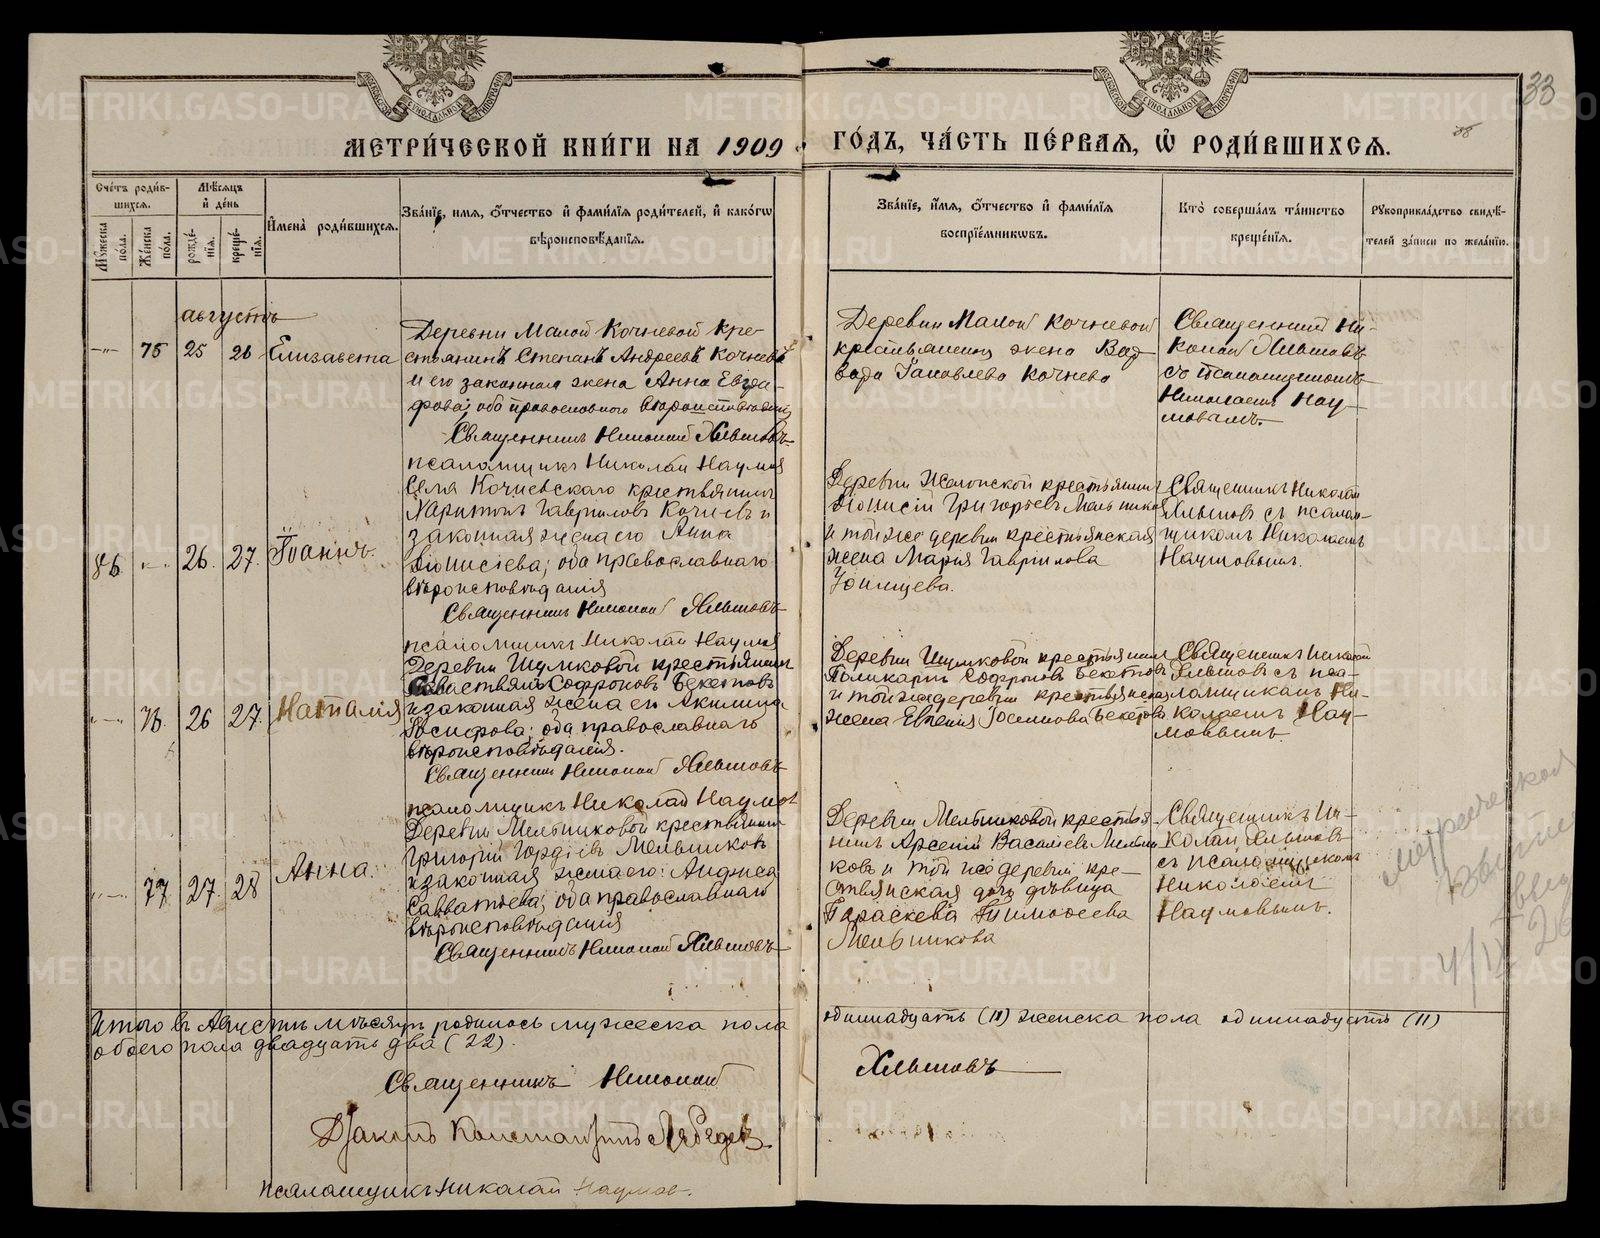 МЕТРИ́ЧЕСКОЙ КНИ́ГИ НА 1909
ГО́ДЪ, ЧА́СТЬ ПЕ́РВАѦ, Ѿ РОДИ́ВШИХСѦ.
33
Сче́тъ роди́в-
шихсѧ.
Мѣ́сѧцъ
и҆ де́нь
Мꙋжеска
пола.
Же́нска
пола.
рожде́-
нїѧ.
креще́-
нїѧ.
И҆мена̀ роди́вшихсѧ.
Зва́нїе, имѧ, ѻ҆́тчество и҆ фами́лїѧ роди́телей, и҆ како́гѡ
вѣроисповѣ́данїѧ.
Зва́нїе, и҆́мѧ, ѻ҆́тчество и҆ фами́лїѧ
воспрїе́мникѡвъ.
Кто̀ соверша́лъ та́инство
креще́нїѧ.
Рꙋкоприкла́дство свидѣ́-
телей за́писи по жела́нїю.
августъ
75 25 26 Елизавета
Деревни Малой Кочневой кре-
стьянинъ Степанъ Андреевъ Кочневъ
и его законная жена Анна Евгра-
фова; оба православного вероисповедания
Священникъ Николай Хлыновъ
псаломщикъ Николай Наумов
Деревни Малой Кочневой
крестьянина жена Вар-
вара Яковлева Кочнева
Священник Ни-
колай Хлыновъ
съ псаломщикомъ
Николаемъ Нау-
мовымъ.
86 26. 27. Іоаннъ.
Села Кочневскаго крестьянинъ
Харитонъ Гавриловъ Кочневъ и
законная жена его Анна
Діонисіева; оба православнаго
вѣроисповѣданія
Священникъ Николай Хлыновъ
псаломщикъ Николай Наумов
Деревни крестьянинъ
Діонисій Григорьевъ Мельников
и той же деревни крестьянская
жена Марія Гаврилова
Священникъ Николай
Хлыновъ съ псалом-
щикомъ Николаемъ
Наумовымъ.
76. 26 27. Наталія
Деревни Шумковой крестьянинъ
Софроновъ Бекетовъ
и законная жена его Акилина
Іосифова; оба православнаго
вѣроисповѣданія.
Священник Николай Хлыновъ
псаломщикъ Николай Наумов
Деревни Шумковой крестьянин
Поликарпъ Софроновъ Бекетовъ
и той же деревни крестьянская
жена Евгенія Іосипова Бекетова
Священникъ Николай
Хлыновъ съ пса-
ломщикомъ Ни-
колаемъ Нау-
мовымъ.
77 27. 28 Анна.
Деревни Мельниковой крестьянин
Григорій Гордіевъ Мельниковъ
и законная жена его: Анфиса
Савватьева; оба православнаго
вѣроисповѣданія
Священникъ Николай Хлыновъ
Деревни Мельниковой крестья-
нинъ Арсеній Васильевъ Мельни-
ковъ и той же деревни кре-
стьянская дочь дѣвица
Параскева Тимофеева
Мельникова
Священникъ Ни-
колай Хлыновъ
съ псаломщикомъ
Николаемъ
Наумовымъ.
Итого въ Августѣ мѣсяцѣ родилось мужеска пола
одиннадцать (11) женска пола одиннадцать (11)
обоего пола двадцать два (22).
Священникъ Николай Хлыновъ
Діаконъ Константинъ Лебедевъ
псаломщикъ Николай Наумов.
метрической
4/IX 26
METRIKI.GASO-URAL.RU